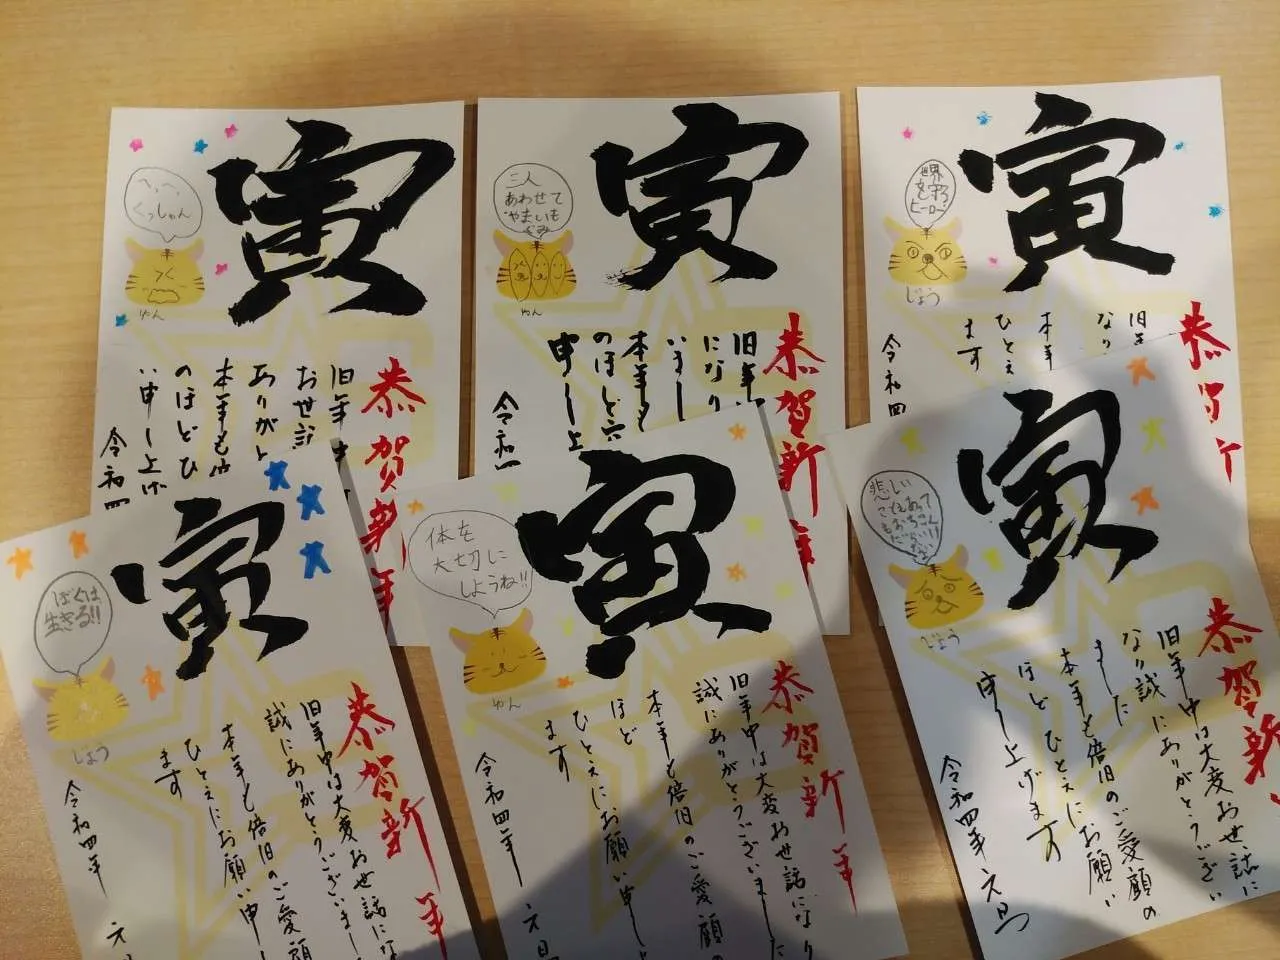 寅
へ、へ、
くっしゃん
ゆん
恭賀新年
旧年中
お世話
ありがと
本年も倍
のほどひ
い申し上げ
令和四
寅
三人
あわせて
やまいも
ぐみ
ゆん
恭賀新年
旧年
になり
いまし
本年も
のほど
申し上
令和
寅
世界
を守る
ヒーロー
じょう
恭賀新
旧年
なり
本年
ひとえ
ます
令和四
寅
ぼくは
生きる!!
じょう
恭賀新年
旧年中は大変お世話にな
誠にありがとうございまし
本年も倍旧のご愛顧
ひとえにお願い申し
ます
令和四年 元日
寅
体を
大切に
しようね!!
ゆん
恭賀新年
旧年中は大変お世話になり
誠にありがとうございました
本年も倍旧のご愛顧
ほど
ひとえにお願い申し上
ます
令和四年 元日
寅
悲しい
ことあって
もおちこん
じょう
恭賀新
旧年中は大変お世話に
なり誠にありがとうござい
ました
本年も倍旧のご愛顧の
ほどひとえにお願い
申し上げます
令和四年 元旦